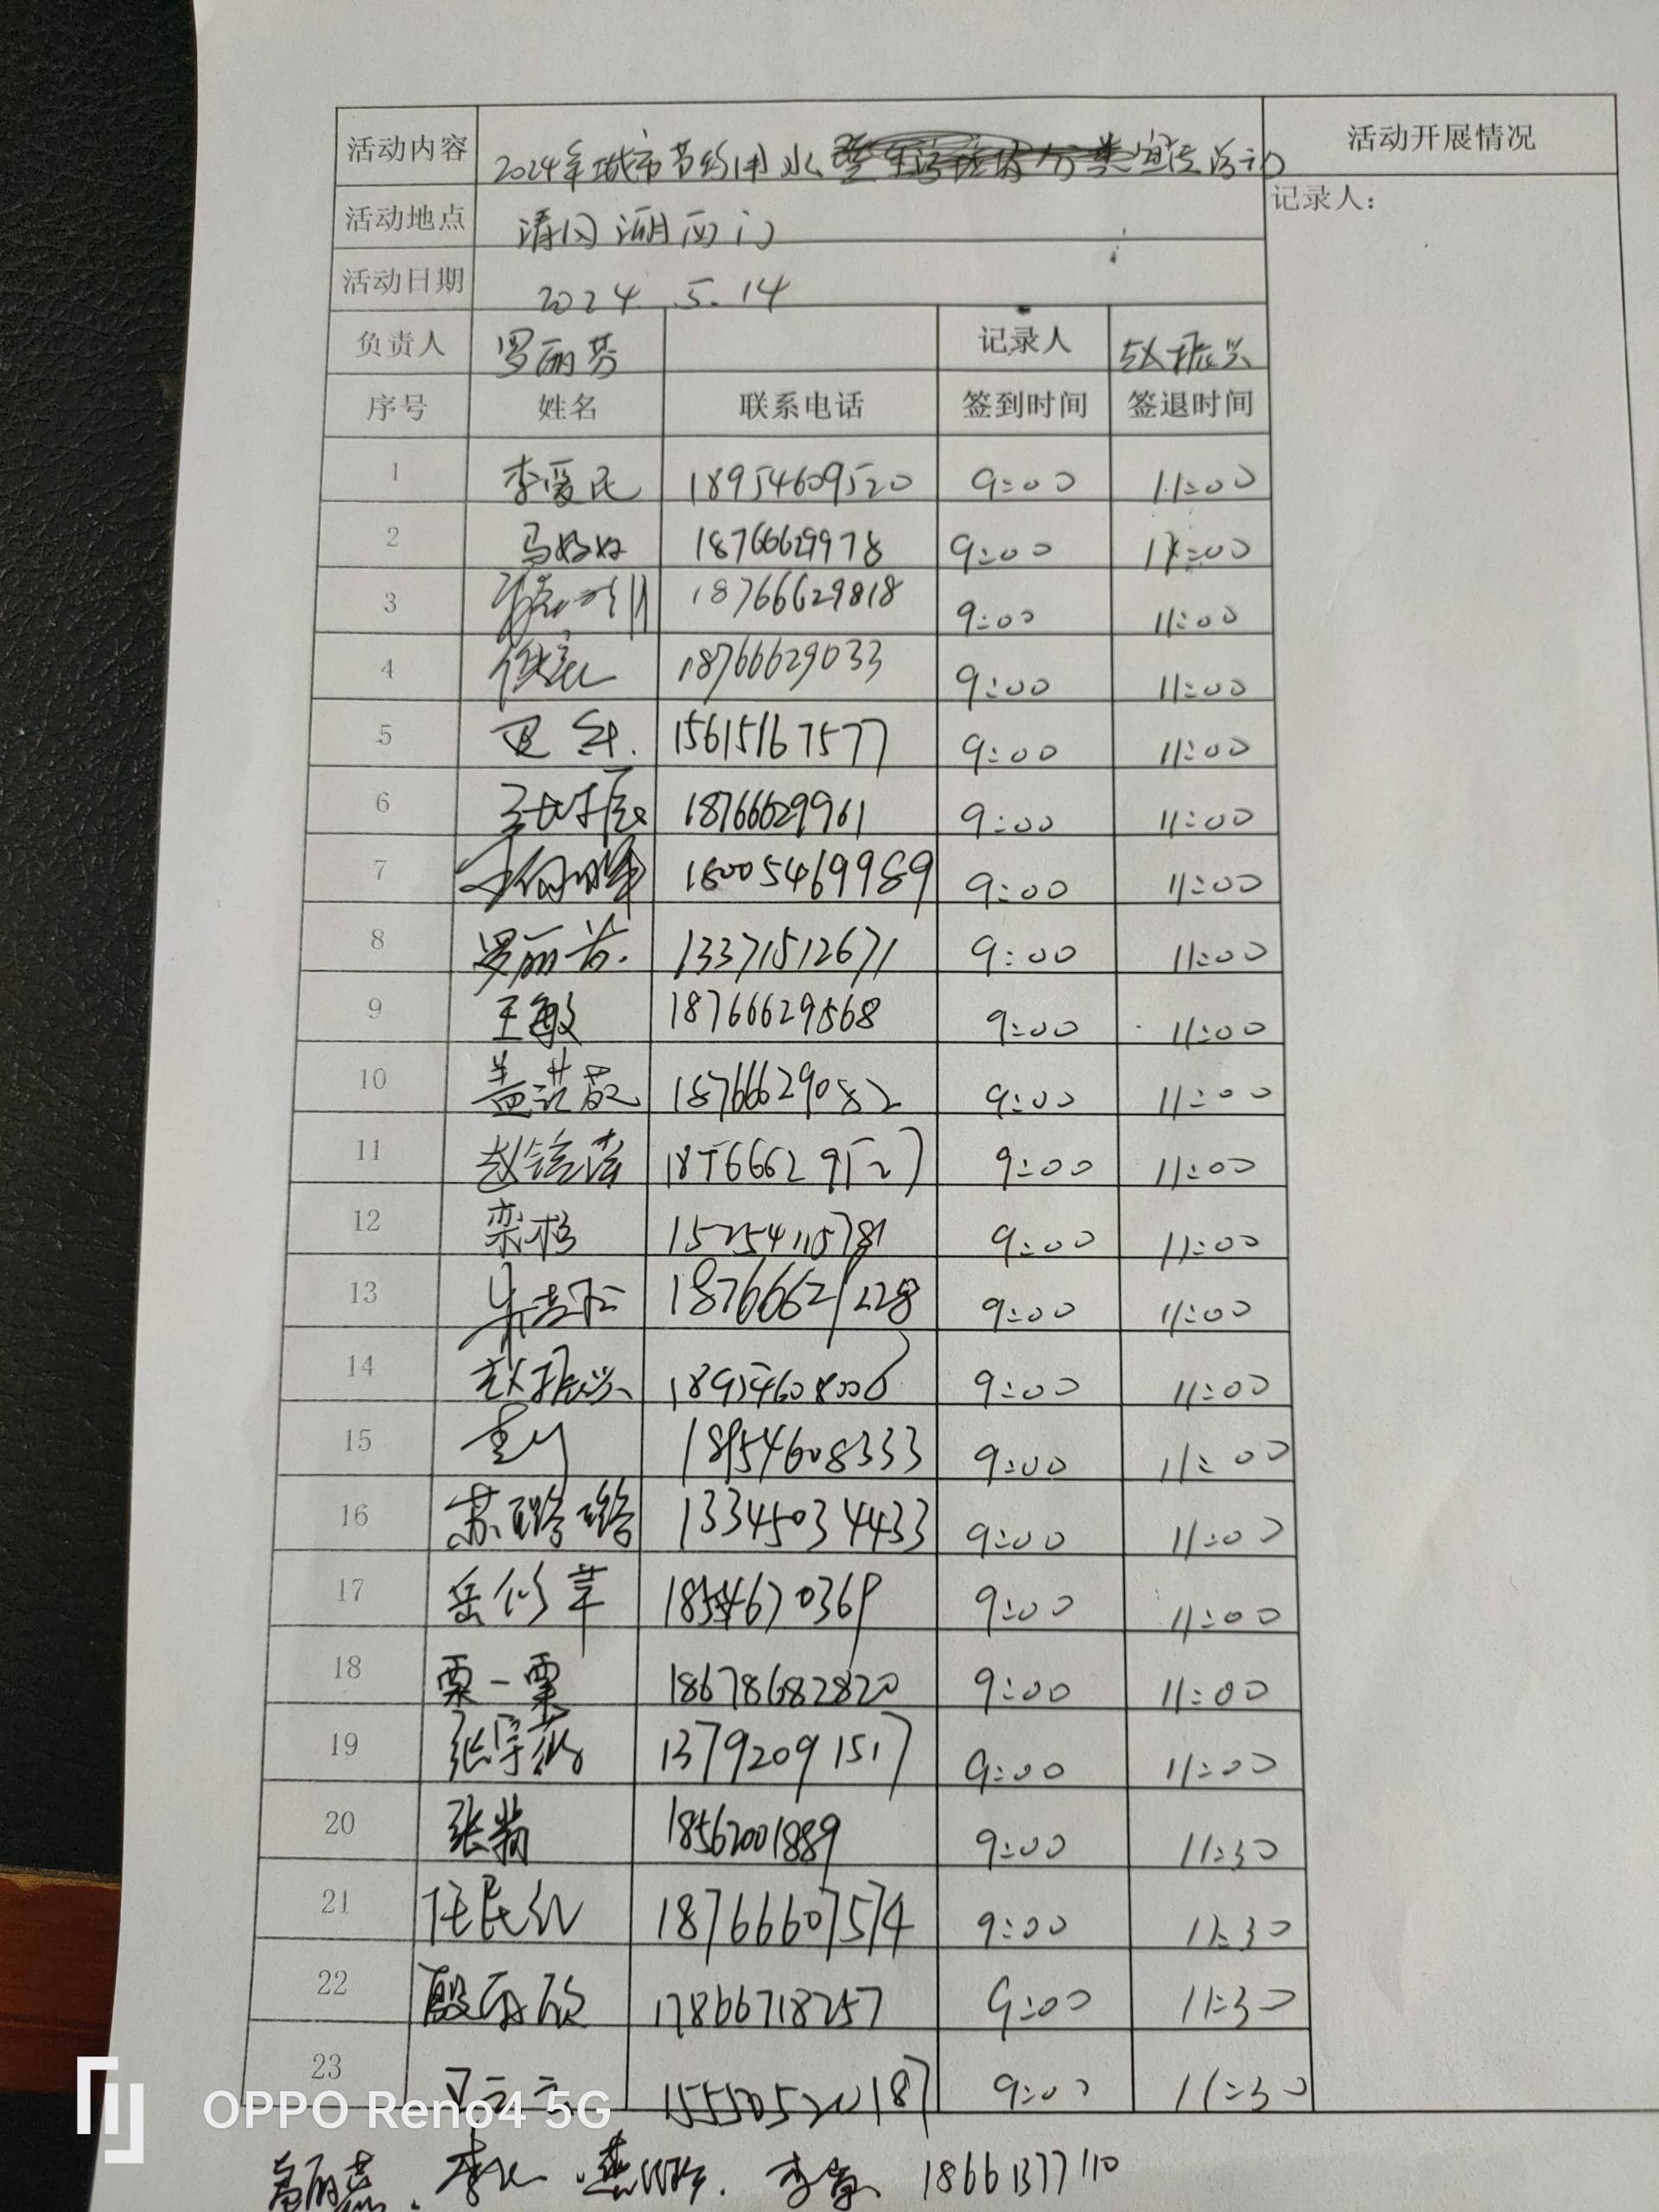 活动内容 2024年城市节约用水 宣传活动 活动开展情况
活动地点 清风湖西门 记录人：
活动日期 2024.5.14
负责人 罗丽芬 记录人 赵振兴
序号 姓名 联系电话 签到时间 签退时间
1 李爱民 18954609520 9:00 11:00
2 马好好 18766629978 9:00 11:00
3 18766629818 9:00 11:00
4 18766629033 9:00 11:00
5 15615167577 9:00 11:00
6 18766629961 9:00 11:00
7 18005469989 9:00 11:00
8 罗丽芬 13371512671 9:00 11:00
9 王敏 18766629568 9:00 11:00
10 18766629082 9:00 11:00
11 9:00 11:00
12 栾杉 9:00 11:00
13 9:00 11:00
14 赵振兴 18954608006 9:00 11:00
15 18954608333 9:00 11:00
16 苏璐璐 13345034433 9:00 11:00
17 岳修苹 9:00 11:00
18 栗一栗 18678682820 9:00 11:00
19 13792091517 9:00 11:00
20 18562001889 9:00 11:30
21 任民红 18766607574 9:00 11:30
22 17866718257 9:00 11:30
23 15550520187 9:00 11:30
18661377110
OPPO Reno4 5G